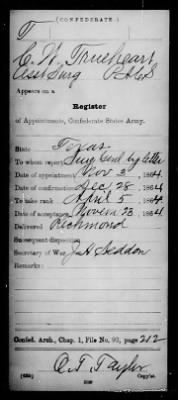 (CONFEDERATE.)
T
C. W. Trueheart
Asst Surg P.A.C.S
Appears on a
Register
of Appointments, Confederate States Army.
State Texas
To whom report Surg Genl by letter
Date of appointment Nov 3, 1864
Date of confirmation Dec 28, 1864
To take rank April 5, 1864
Date of acceptance Novem 23, 1864
Delivered Richmond
Subsequent disposition
Secretary of War J. A. Seddon
Remarks:
Confed. Arch., Chap. 1, File No. 93, page 212
O. T. Taylor
Copyist.